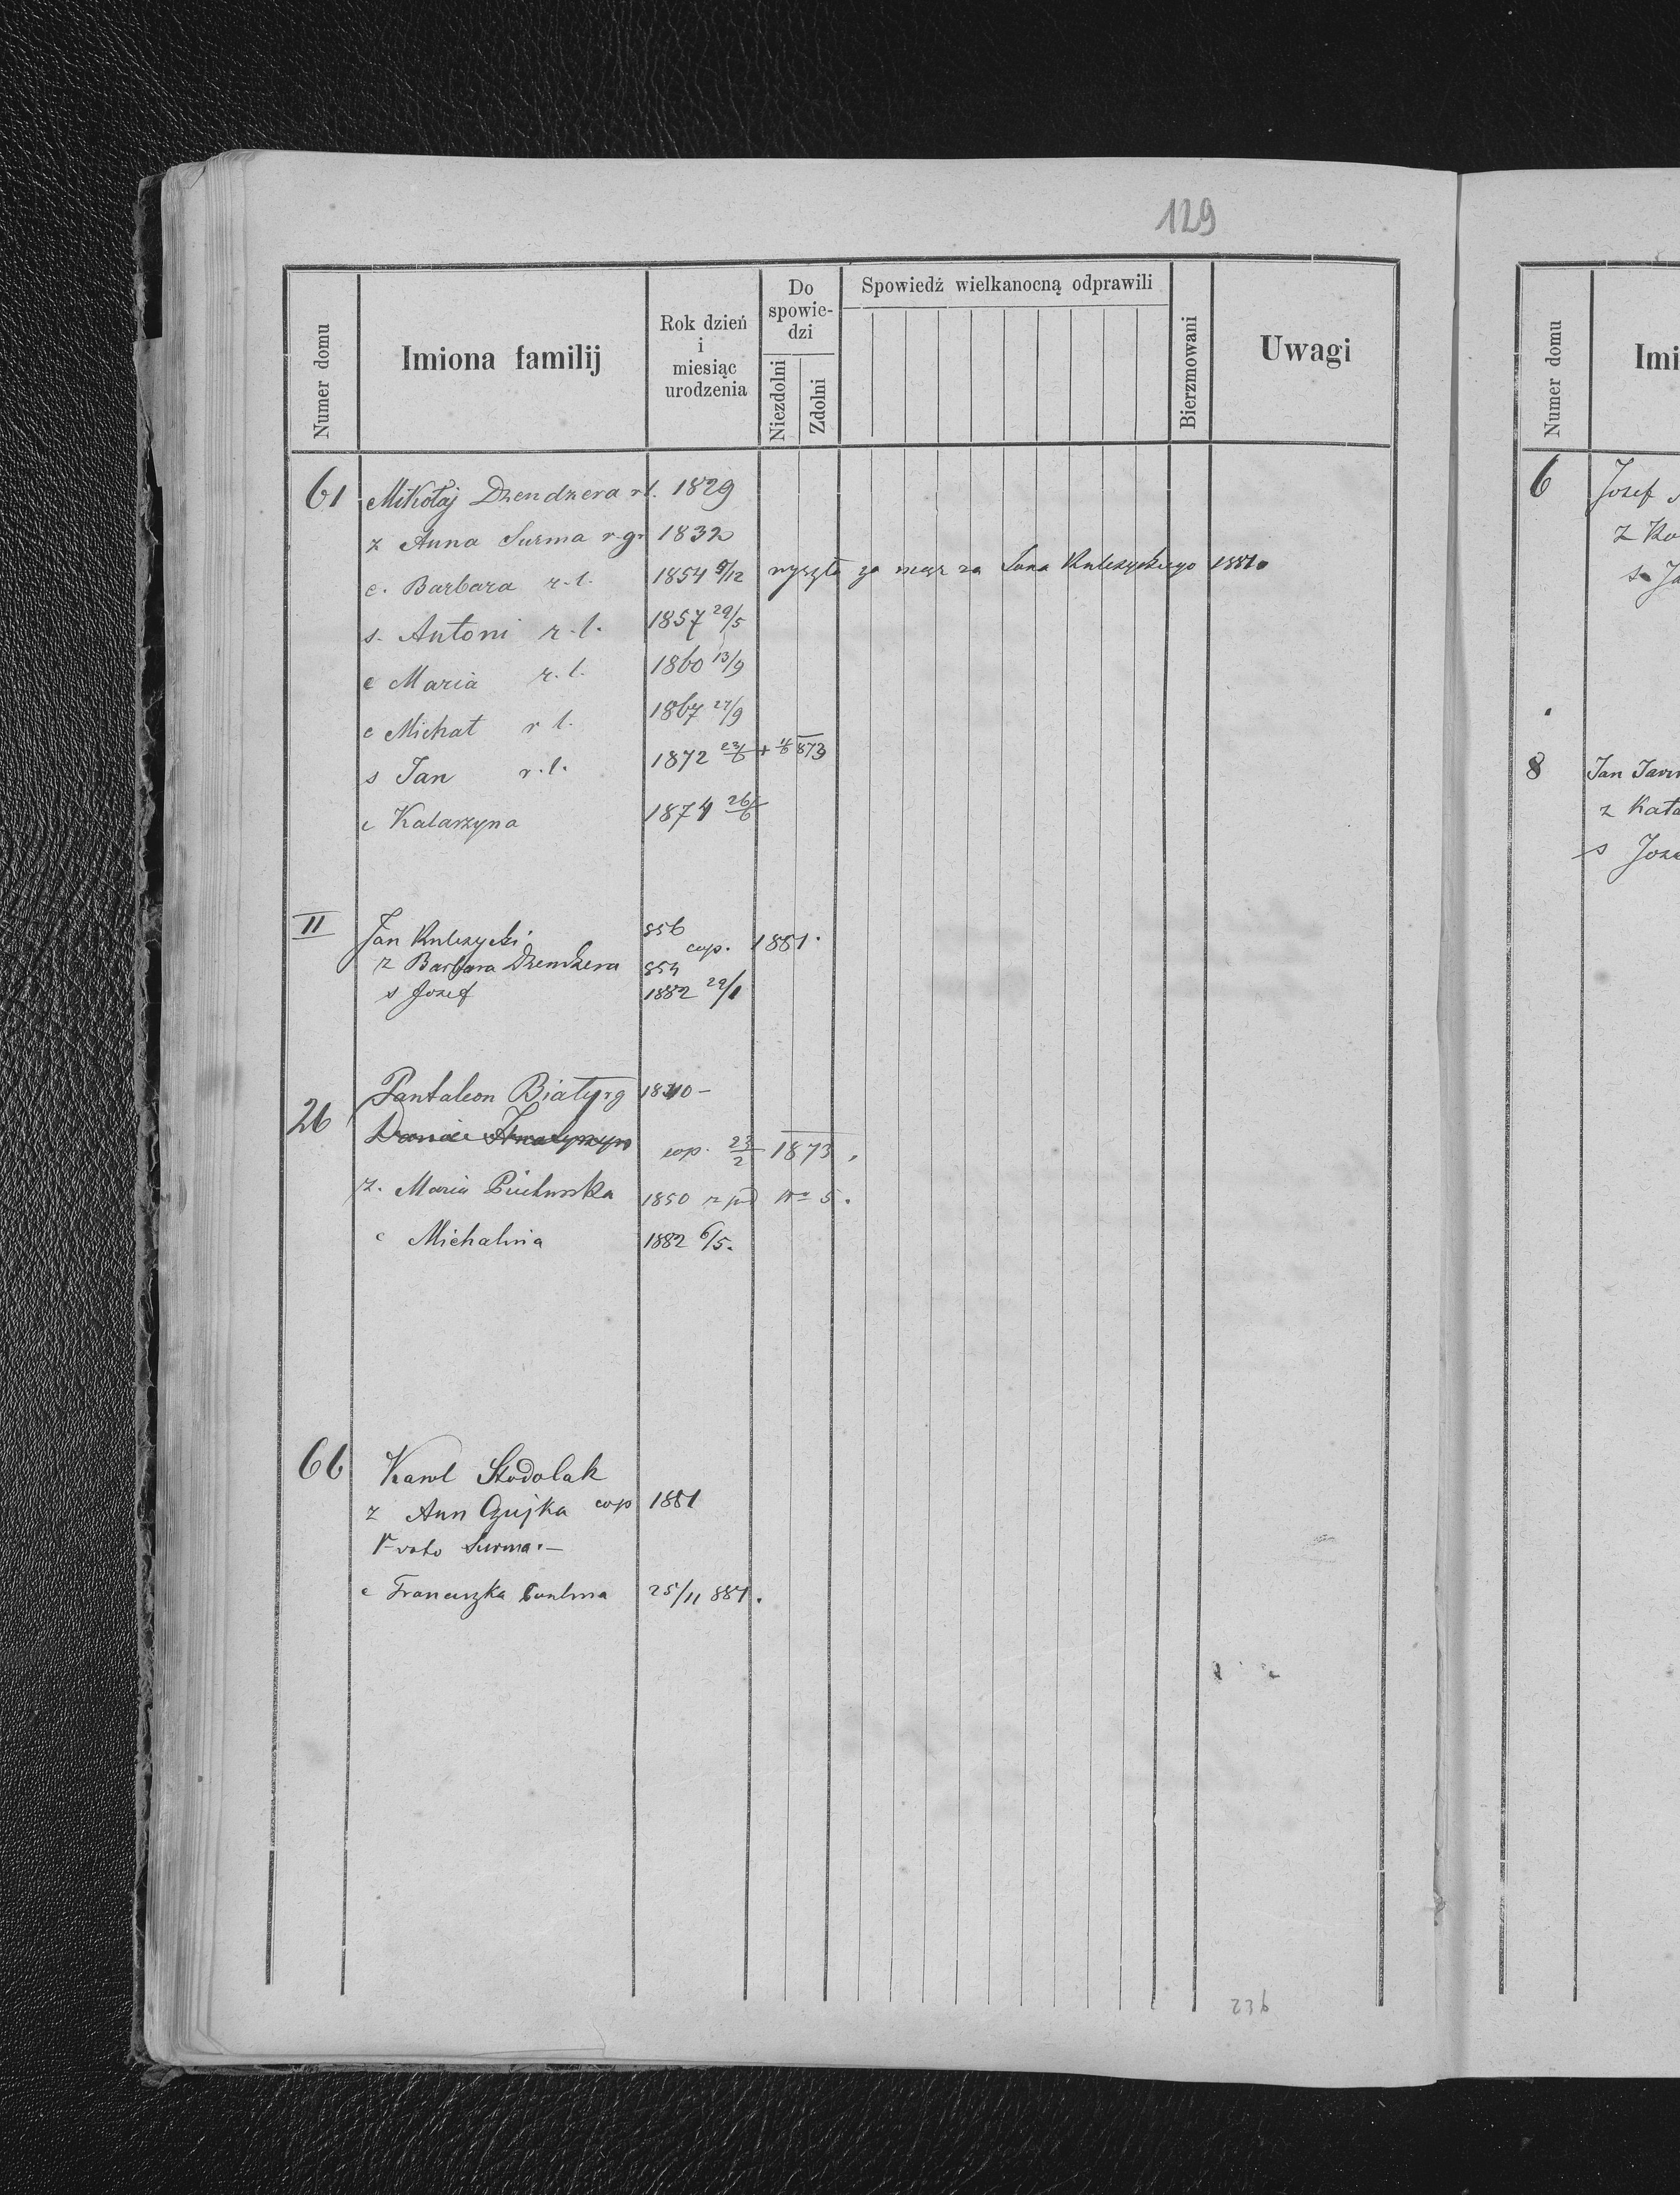 129
Numer domu
Imiona familij
Rok dzień i miesiąc urodzenia
Do spowie-dzi
Niezdolni
Zdolni
Spowiedź wielkanocną odprawili
Bierzmowani
Uwagi
61 Mikołaj Dzendzera r.l. 1829
z Anna Surma r.gr 1832
c. Barbara r.l. 1854 /12 wyszła za mąż za Jana Kulczyckiego 1881
s. Antoni r.l. 1857 29/5
c Maria r.l. 1860 13/9
c Michał r l. 1867 27/9
s Jan r.l. 1872 23/6 + 873
c Katarzyna 1874 26/6
II Jan Kulczycki 856
cop. 1881.
z Barbara Dzendzera 854
s Jozef 1882 29/1
26 Pantaleon Białyrg 1840 -
cop. 23/2 1873.
z. Maria 1850 z pod No 5.
c Michalina 1882 6/5.
66 Karol Stodolak
z Ann Czujka cop 1881
1o voto Surma. -
c Franciszka 25/11 881.
236
Numer domu
Imi
6 Jozef
z Ko
s. Ja
8 Jan Jaw
z Kata
s Joze